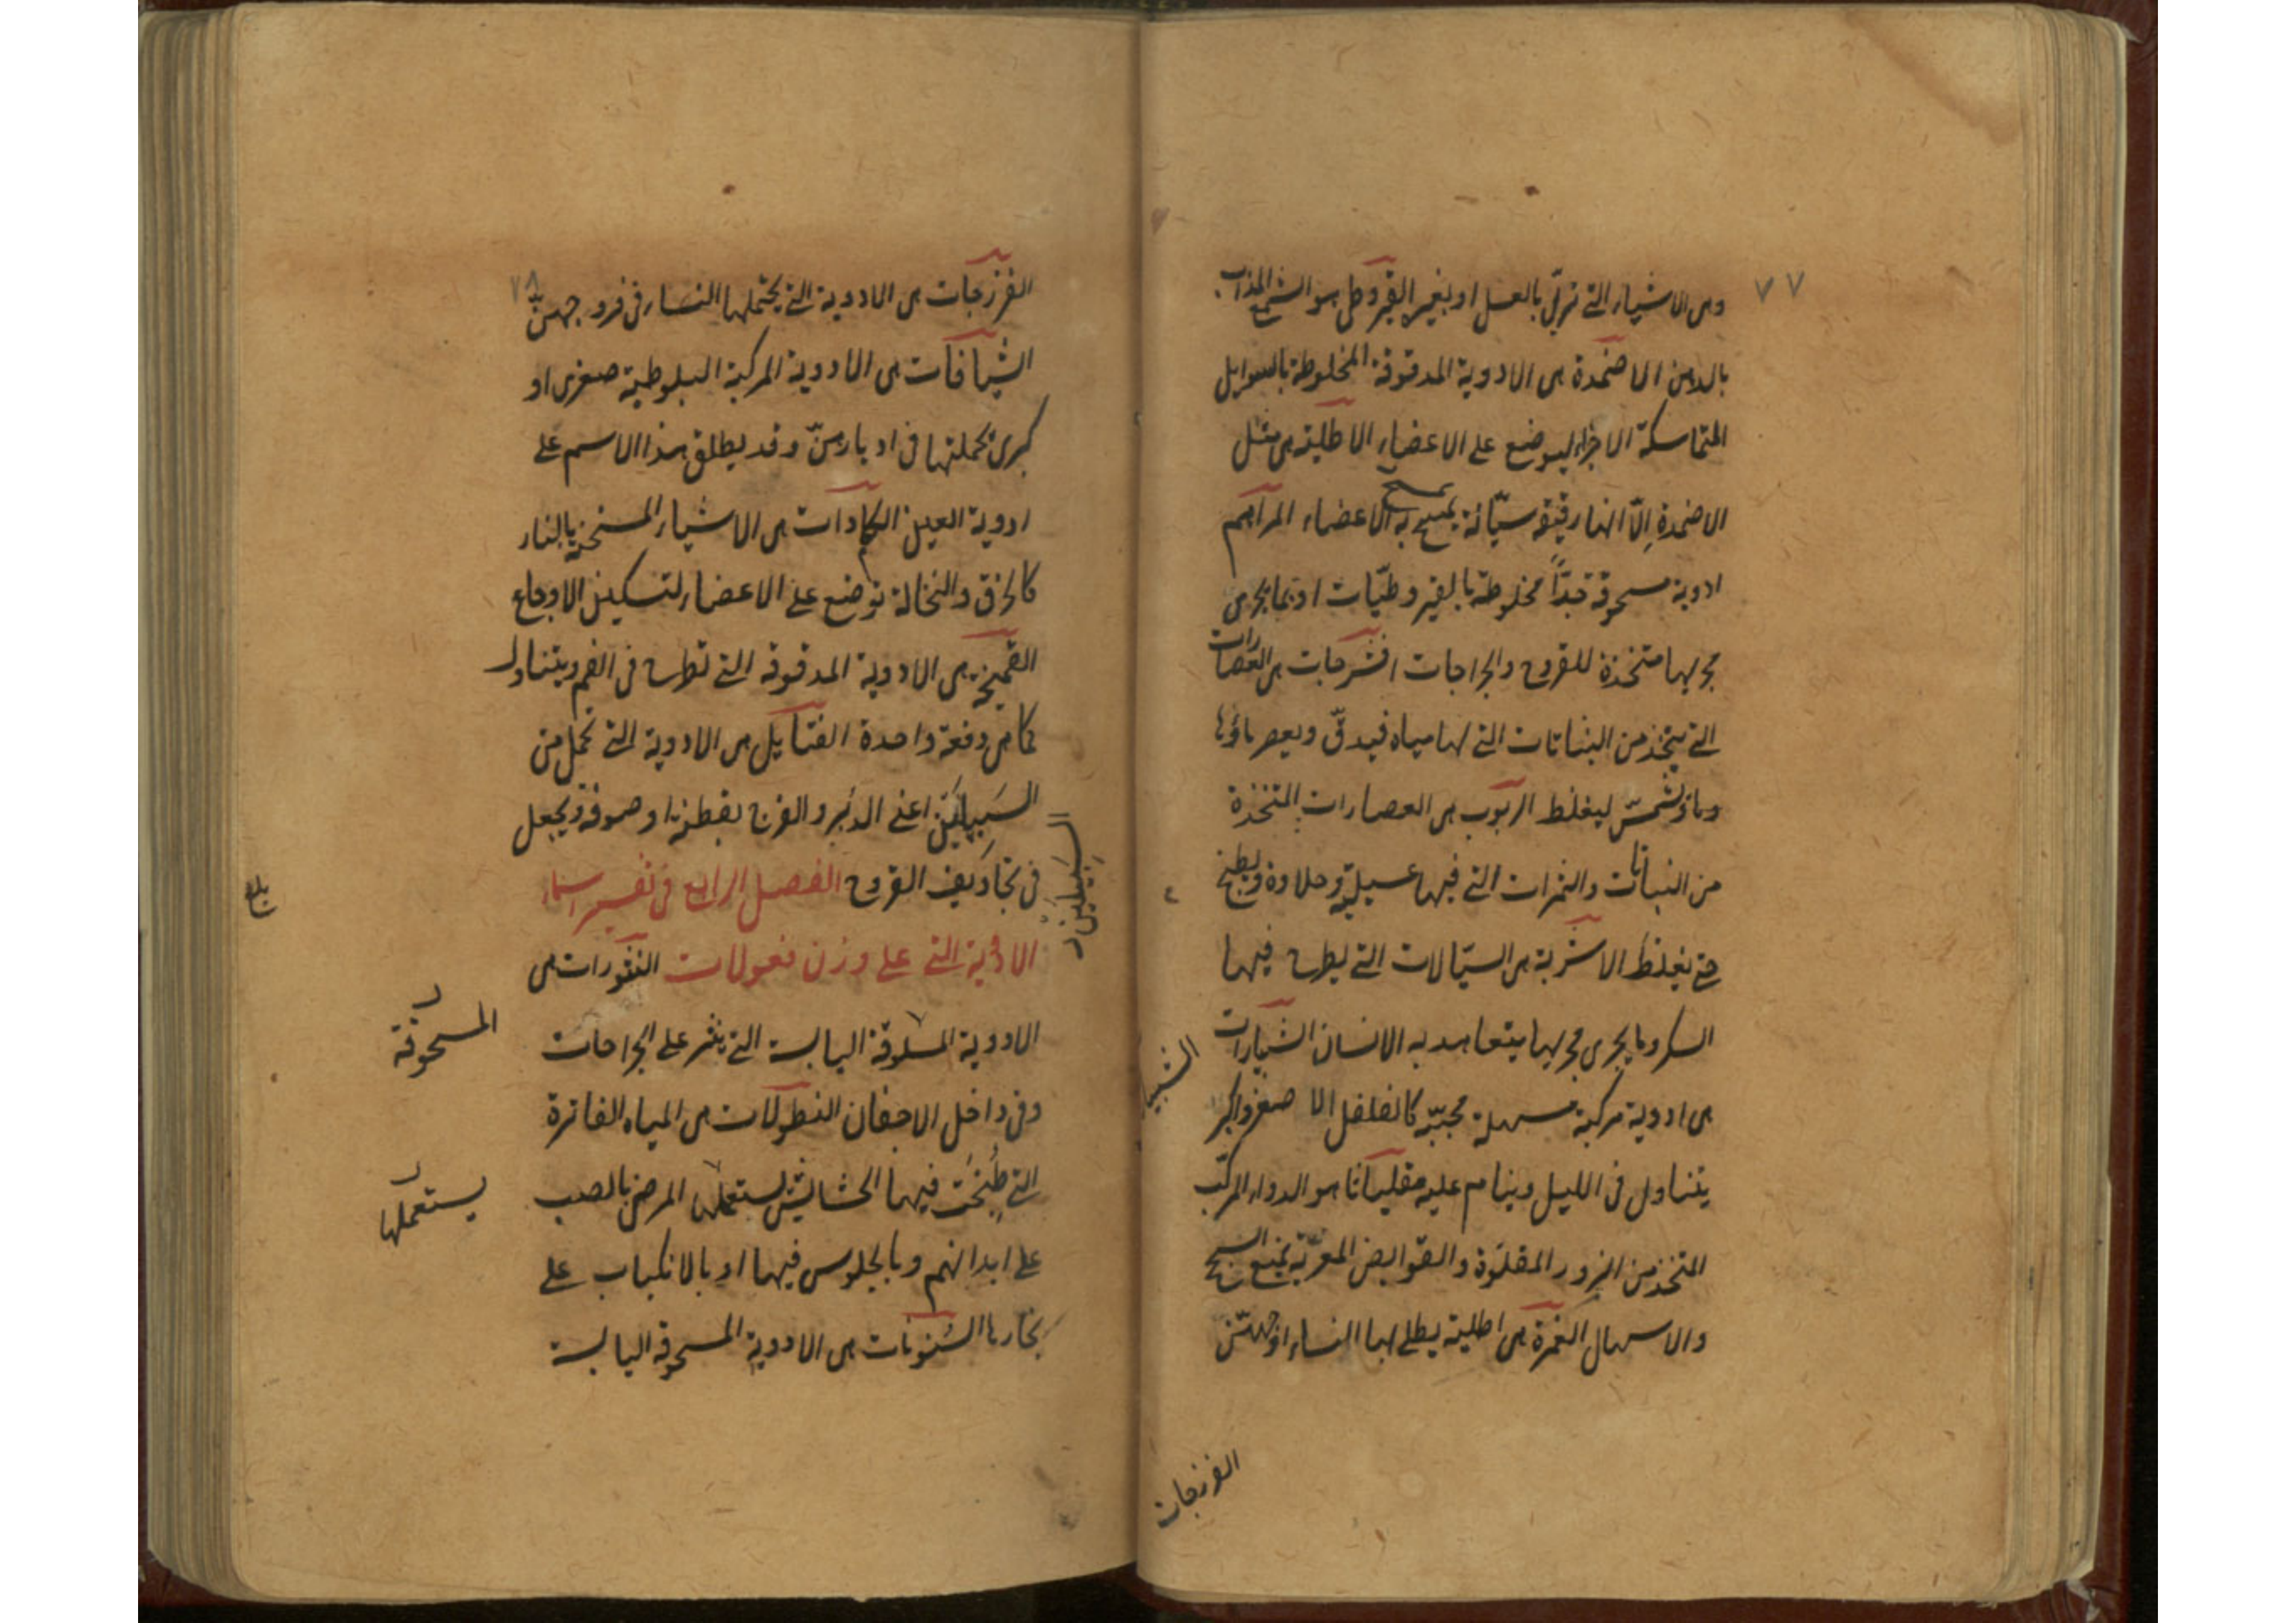 ٧٧
وهي الاشياء التي تربّى بالعسل او بغيره القيروطي هو الشمع المذاب
بالدهن الاضمدة هي الادوية المدقوقة المخلوطة بالسوايل
المتماسكة الاجزاء ليوضع على الاعضاء الاطلية هي مثل
الاضمدة إلّا انها رقيقة سيّالة يمسح به الاعضاء المراهم
ادوية مسحوقة جدّاً مخلوطة بالقيروطيّات او بما يجرى
مجريها متخذة للقروح والجراحات افشرجات هي العصارات
التي يتخذ من النباتات التي لها مياه فيدقّ ويعصر ماؤها
وماؤ يشمّس ليغلظ الربوب هي العصارات المتخذة
من النباتات والثمرات التي فيها عسيلية وحلاوة ويطبخ
حتى يغلظ الاشربة هي السيّالات التي يطرح فيها
السكر وما يجرى مجريها يتعاهد به الانسان الشبيارات
هي ادوية مركبة مسهلة محبّبة كالفلفل الا صغر واكبر
يتناول في الليل وينام عليه مقلياثا هو الدواء المركّب
المتخذ من البزور المقلوّة والقوابض المغريّة يمنع السحج
والاسهال الغمرة هي اطلية يطلى بها النساء اوجههنّ
الشبيا
الفرزجات
٧٨
الفرزجات هي الادوية التي يحتملها النساء في فروجهنّ
الشيافات هي الادوية المركبة البلوطية صغرى او
كبرى تحملتها في ادبارهنّ وقد يطلق هذا الاسم على
ادوية العين الكمادات هي الاشياء المسخنة بالنار
كالخرق والنخالة توضع على الاعضاء لتسكين الاوجاع
القميحة هي الادوية المدقوقة التي تطرح في الفم ويتناول
كما هي دفعة واحدة الفتايل هي الادوية التي تحمل من
السبيلين اعني الدبر والفرج بقطنة او صوفة ويجعل
السبيلين
في تجاويف القروح الفصل الرابع في تفسير اسماء
الادوية التي على وزن فعولات النثورات هي
الادوية المسلوقة اليابسة التي ينثر على الجراحات
المسحوقة
وفي داخل الاجفان النطولات هي المياه الفاترة
التي طبخت فيها الحشايش يستعملها المرضى بالصب
يستعملها
على ابدانهم وبالجلوس فيها او بالانكباب على
بخارها السنونات هي الادوية المسحوقة اليابسة